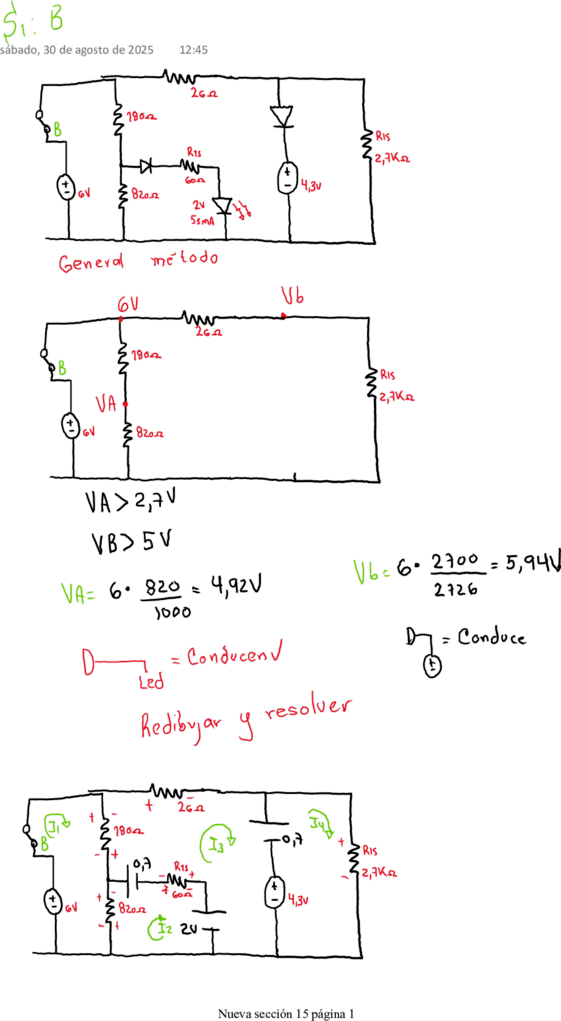 S1: B
sábado, 30 de agosto de 2025 12:45
26Ω
180Ω
B
R15
2,7KΩ
R23
60Ω
6V
820Ω
2V
55mA
4,3V
General método
6V
Vb
26Ω
180Ω
B
R15
2,7KΩ
VA
6V
820Ω
VA > 2,7V
VB > 5V
VA = 6 · 820/1000 = 4,92V
Vb = 6 · 2700/2726 = 5,94V
D Led = Conducen √
D = Conduce
Redibujar y resolver
+ 26Ω -
I1
+ -
180Ω
B
I3
I4
0,7
+ R15
2,7KΩ
-
- +
0,7
R23
- +
+ 60Ω -
6V
+ -
820Ω
- +
I2
2V
4,3V
Nueva sección 15 página 1